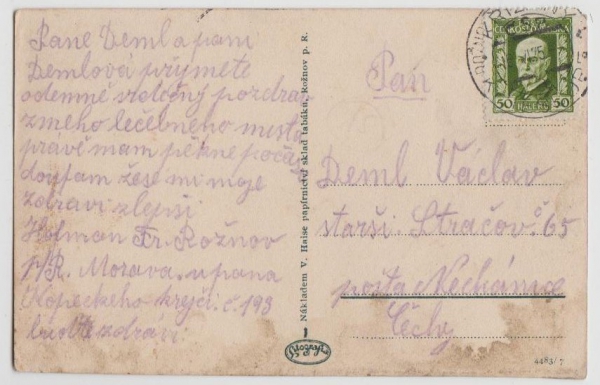 Pane Deml a paní
Demlová přijmete
odemně srdečný pozdrav
zmeho lečebneho mista
pravě mam pěkne počasí
doufam žese mi moje
zdravi zlepši
Holman Fr. Rožnov
p/R. Morava. u pana
Kopeckeho krejčí. č. 193
buďte zdrávi.
Nákladem V. Haise papírnictví sklad tabáku, Rožnov p. R.
Fotografia
ČESKOSLOVENSKO
50 HALÉŘŮ 50
Pán
Deml Václav
starší. Stračov. č. 65
pošta Nechánice
Čechy
4483/7